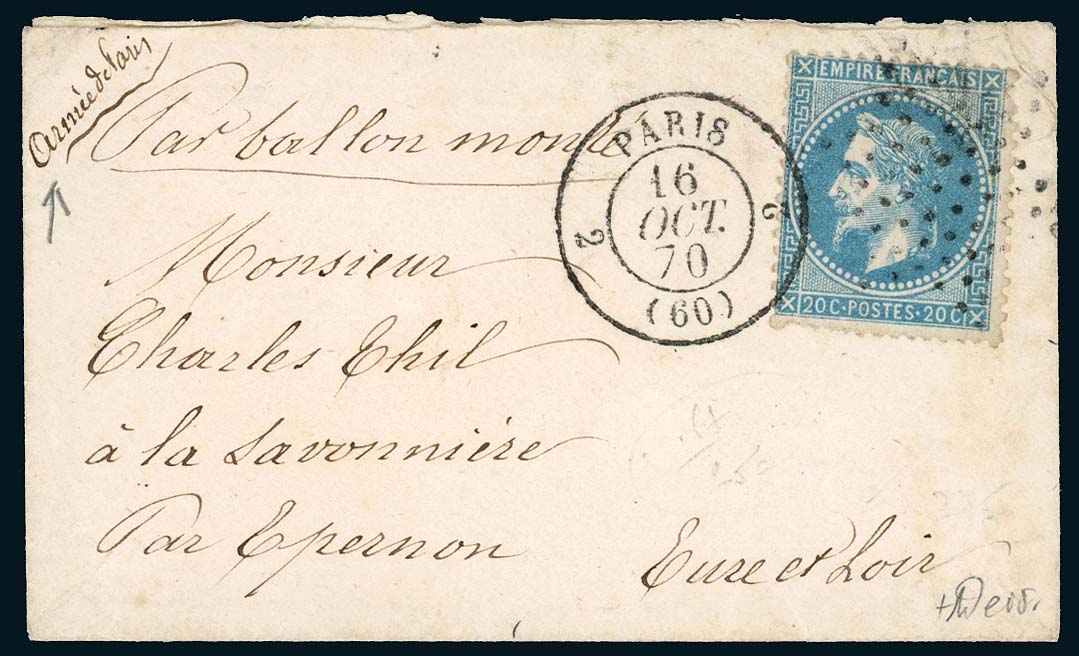 Armée de Paris
Par ballon monté
EMPIRE FRANÇAIS
20 C · POSTES · 20 C
PARIS
2 2
16
OCT.
70
(60)
Monsieur
Charles Thil
à la Savonnière
Par Epernon
Eure et Loir